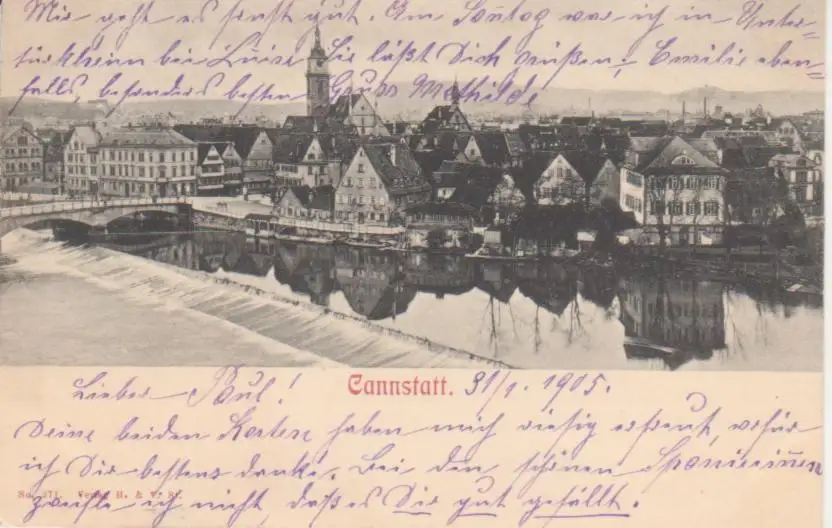 Mir geht es sonst gut. Am Sonntag war ich in Unter=
türkheim bei Luise. Sie läßt Dich grüßen; Emilie eben=
falls, besonders besten Gruss Mathilde
Lieber Paul! Cannstatt. 31/1. 1905.
Deine beiden Karten haben mich riesig erfreut, wofür
ich Dir bestens danke. Bei den schönen
No. 271. Verlag H. & V. St.
zweifle ich nicht, daß es Dir gut gefällt.